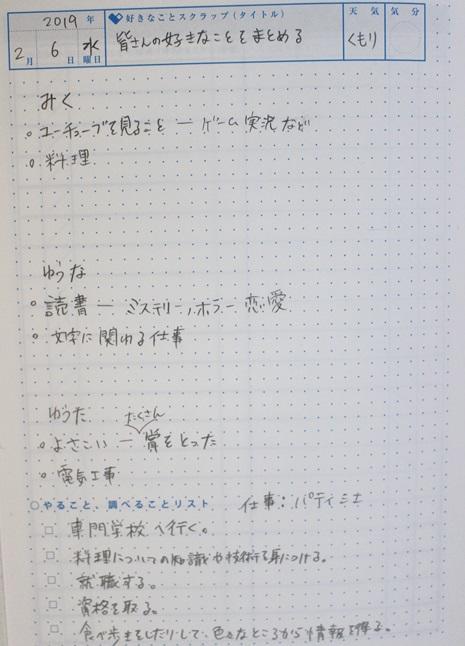 2019年
2月 6日 水曜日
好きなことスクラップ(タイトル)
皆さんの好きなことをまとめる
天気
くもり
気分
みく
ユーチューブを見ること ー ゲーム実況など
料理
ゆうな
読書 ー ミステリー、ホラー 恋愛
文字に関わる仕事
ゆうた
たくさん
よさこい ー 賞をとった
電気工事
○やること、調べることリスト
仕事:パティシエ
□ 専門学校へ行く。
□ 料理についての知識や技術を身につける。
□ 就職する。
□ 資格を取る。
□ 食べ歩きをしたりして、色々なところから情報を得る。